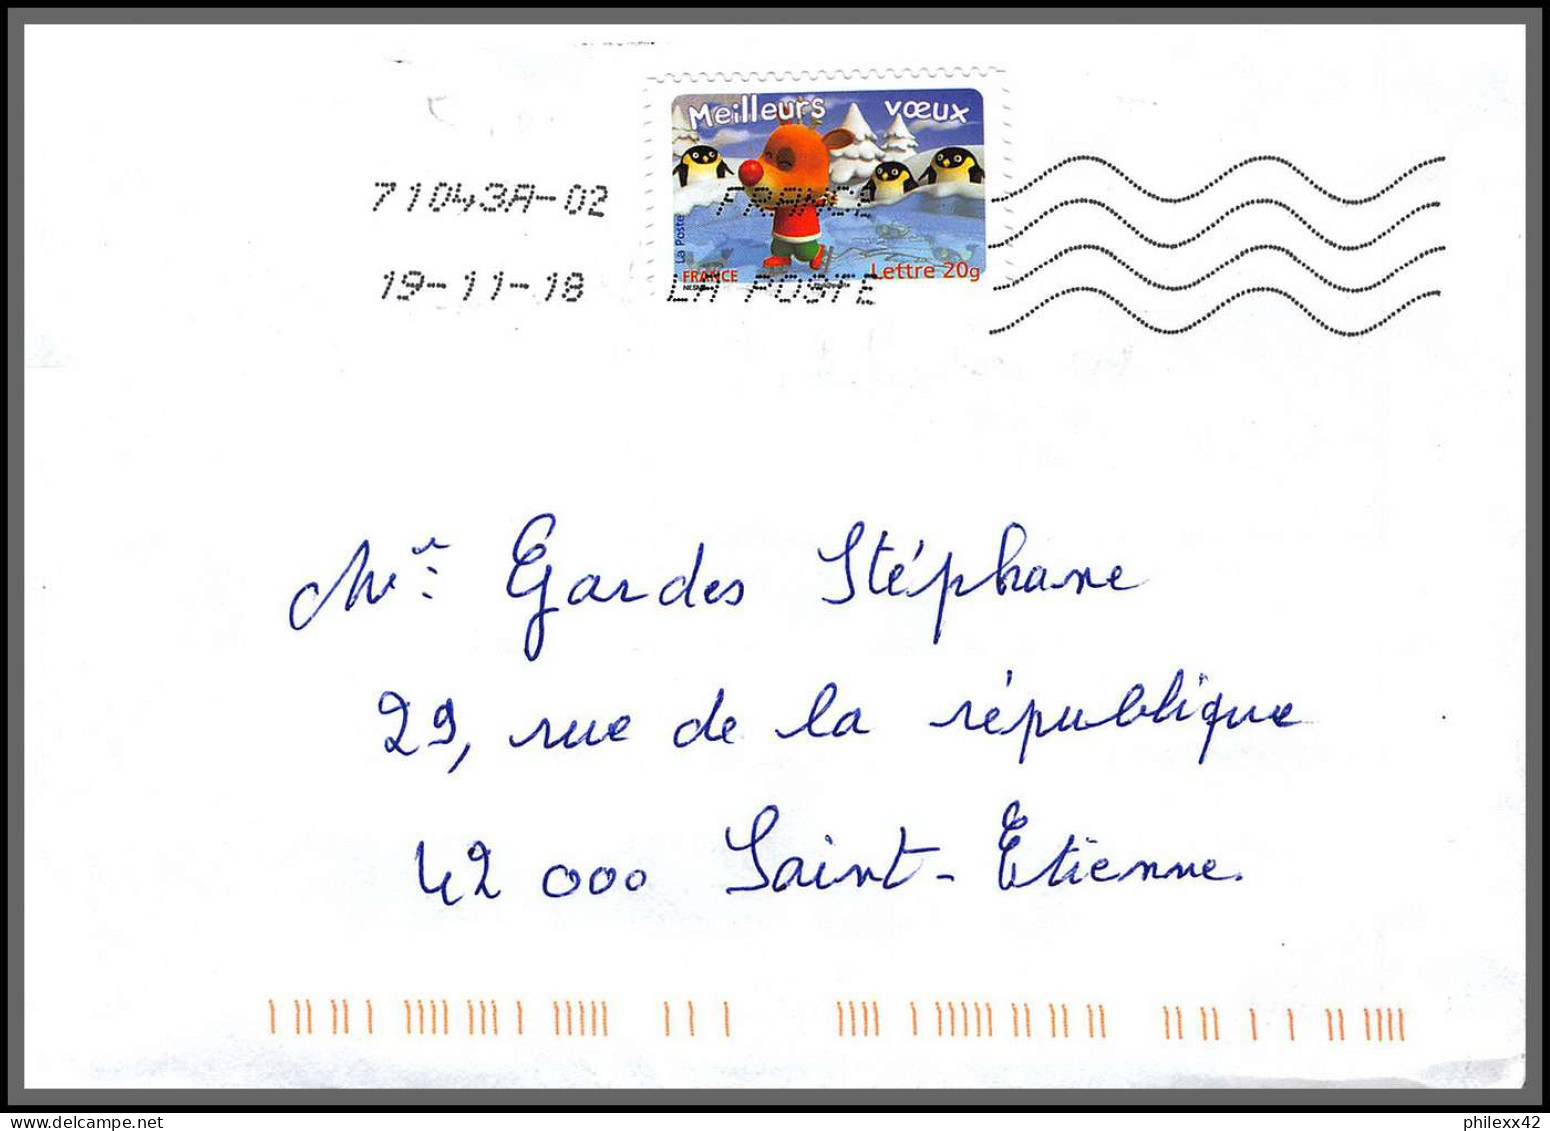 Meilleurs vœux
71043A-02
FRANCE
La Poste
FRANCE
Lettre 20g
19-11-18
LA POSTE
Mr: Gardes Stéphane
29, rue de la république
42 000 Saint-Etienne.
philexx42